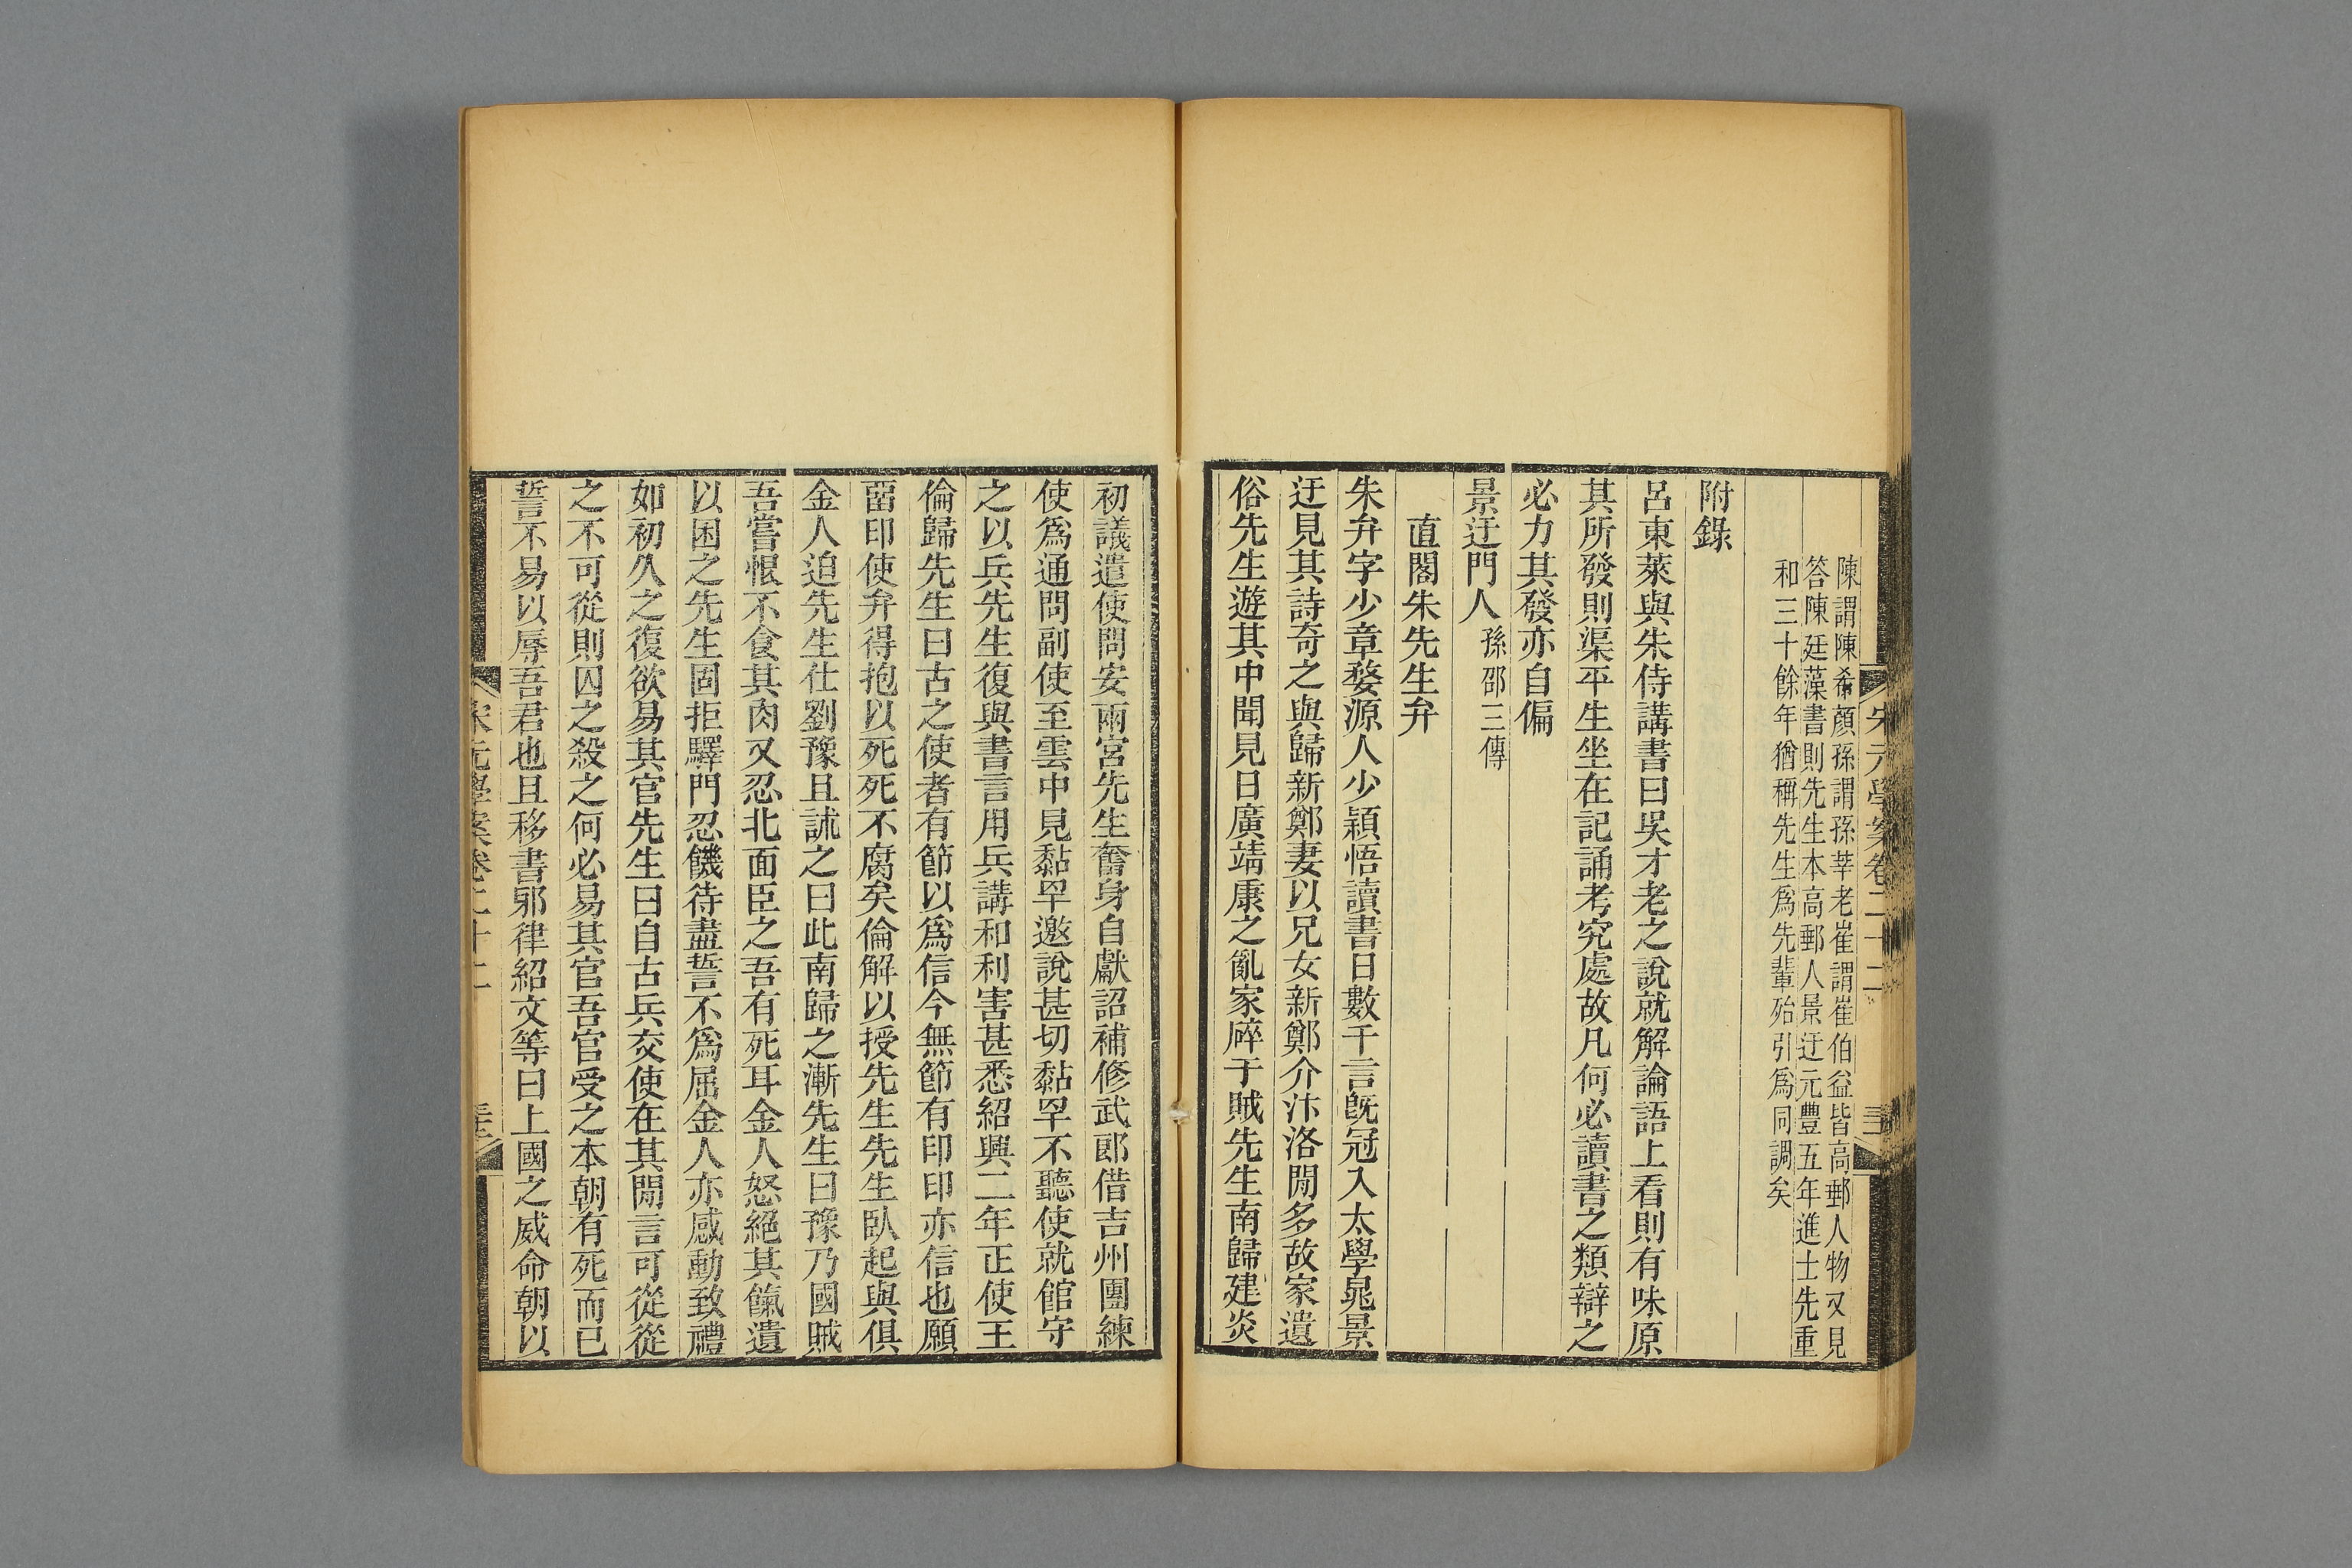 陳謂陳希顏孫謂孫莘老崔謂崔伯益皆高郵人物又見
答陳廷藻書則先生本高郵人景迂元豐五年進士先重
和三十餘年猶稱先生爲先輩殆引爲同調矣
附錄
呂東萊與朱侍講書曰吳才老之說就解論語上看則有味原
其所發則渠平生坐在記誦考究處故凡何必讀書之類辯之
必力其發亦自偏
景迂門人孫邵三傳
直閣朱先生弁
朱弁字少章婺源人少穎悟讀書日數千言旣冠入太學晁景
迂見其詩奇之與歸新鄭妻以兄女新鄭介汴洛閒多故家遺
俗先生遊其中聞見日廣靖康之亂家碎于賊先生南歸建炎
初議遣使問安兩宮先生奮身自獻詔補修武郎借吉州團練
使爲通問副使至雲中見黏罕邀說甚切黏罕不聽使就館守
之以兵先生復與書言用兵講和利害甚悉紹興二年正使王
倫歸先生曰古之使者有節以爲信今無節有印印亦信也願
畱印使弁得抱以死死不腐矣倫解以授先生先生臥起與俱
金人迫先生仕劉豫且訹之曰此南歸之漸先生曰豫乃國賊
吾嘗恨不食其肉又忍北面臣之吾有死耳金人怒絕其餼遺
以困之先生固拒驛門忍饑待盡誓不爲屈金人亦感動致禮
如初久之復欲易其官先生曰自古兵交使在其閒言可從從
之不可從則囚之殺之何必易其官吾官受之本朝有死而已
誓不易以辱吾君也且移書耶律紹文等曰上國之威命朝以
宋元學案卷二十二